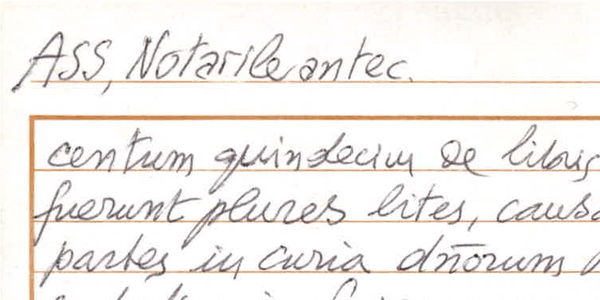 ASS, Notarile antec.
centum quindecim de libris
fuerunt plures lites, causa
partes in curia dñorum